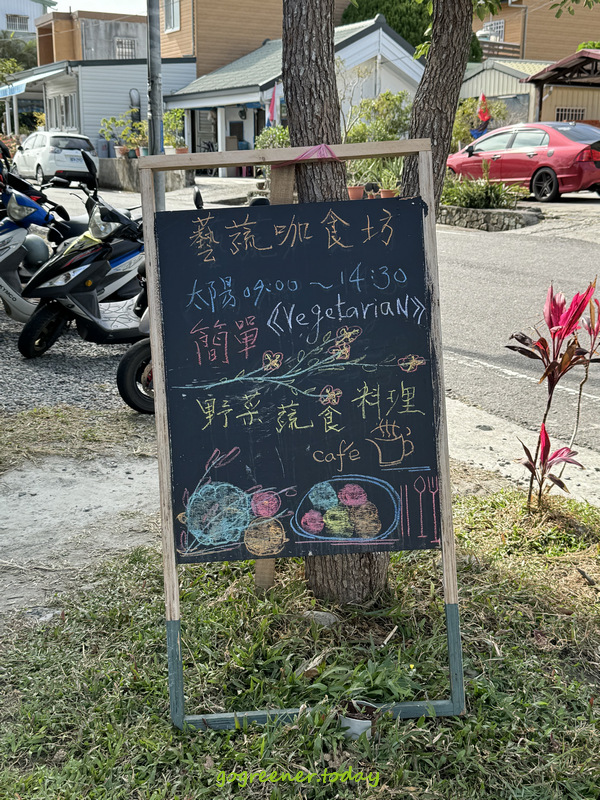 藝蔬咖食坊
太陽 09:00~14:30
簡單《VegetariaN》
野菜蔬食料理
café
gogreener.today